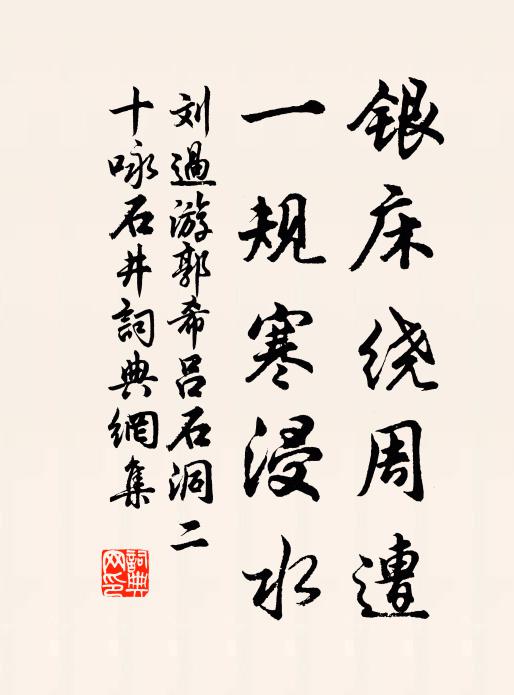 银床绕周遭
一规寒浸水
刘過游郭希吕石洞二
十咏石井詞典網集
詞典网印